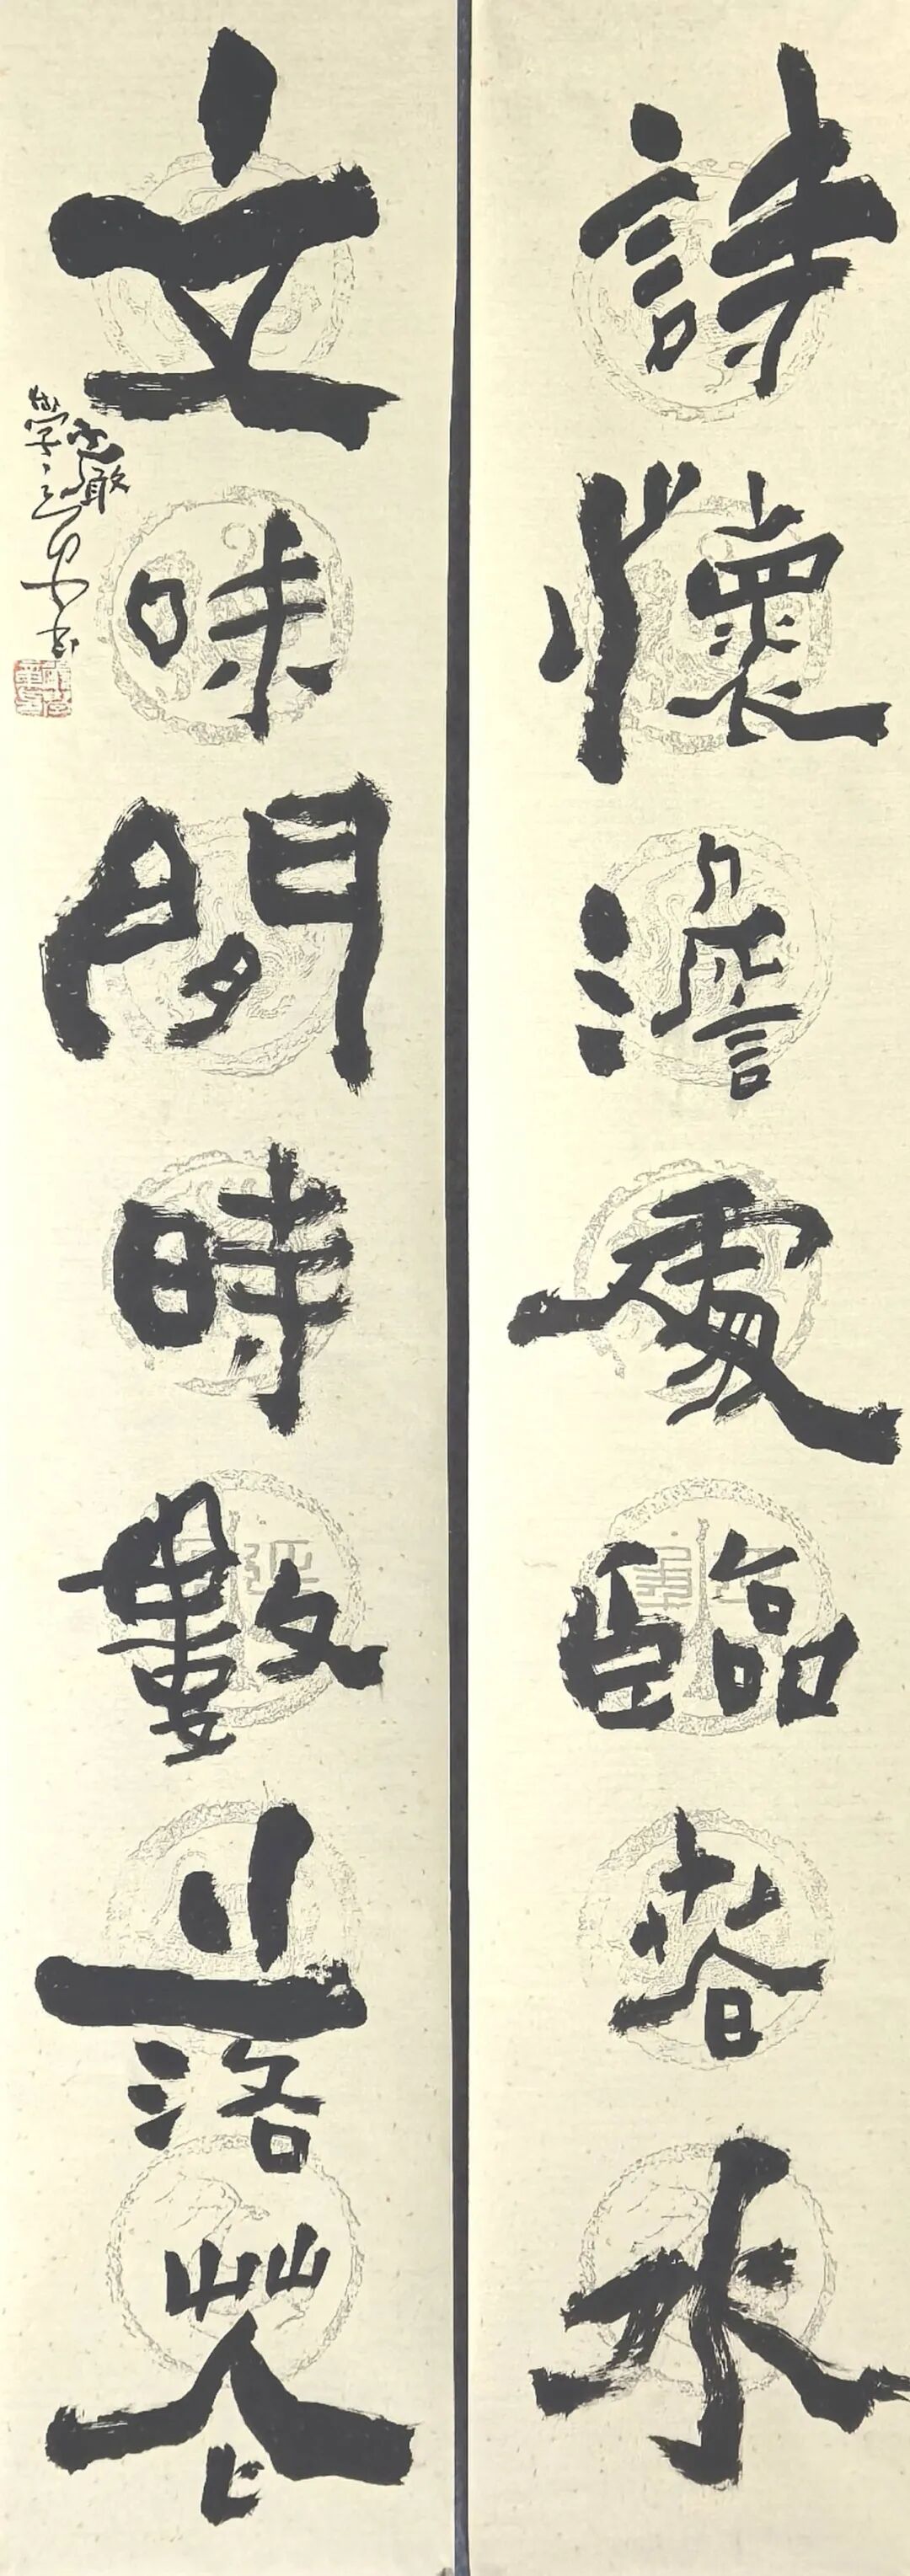 詩懷澹處臨春水
文味閒時數落花